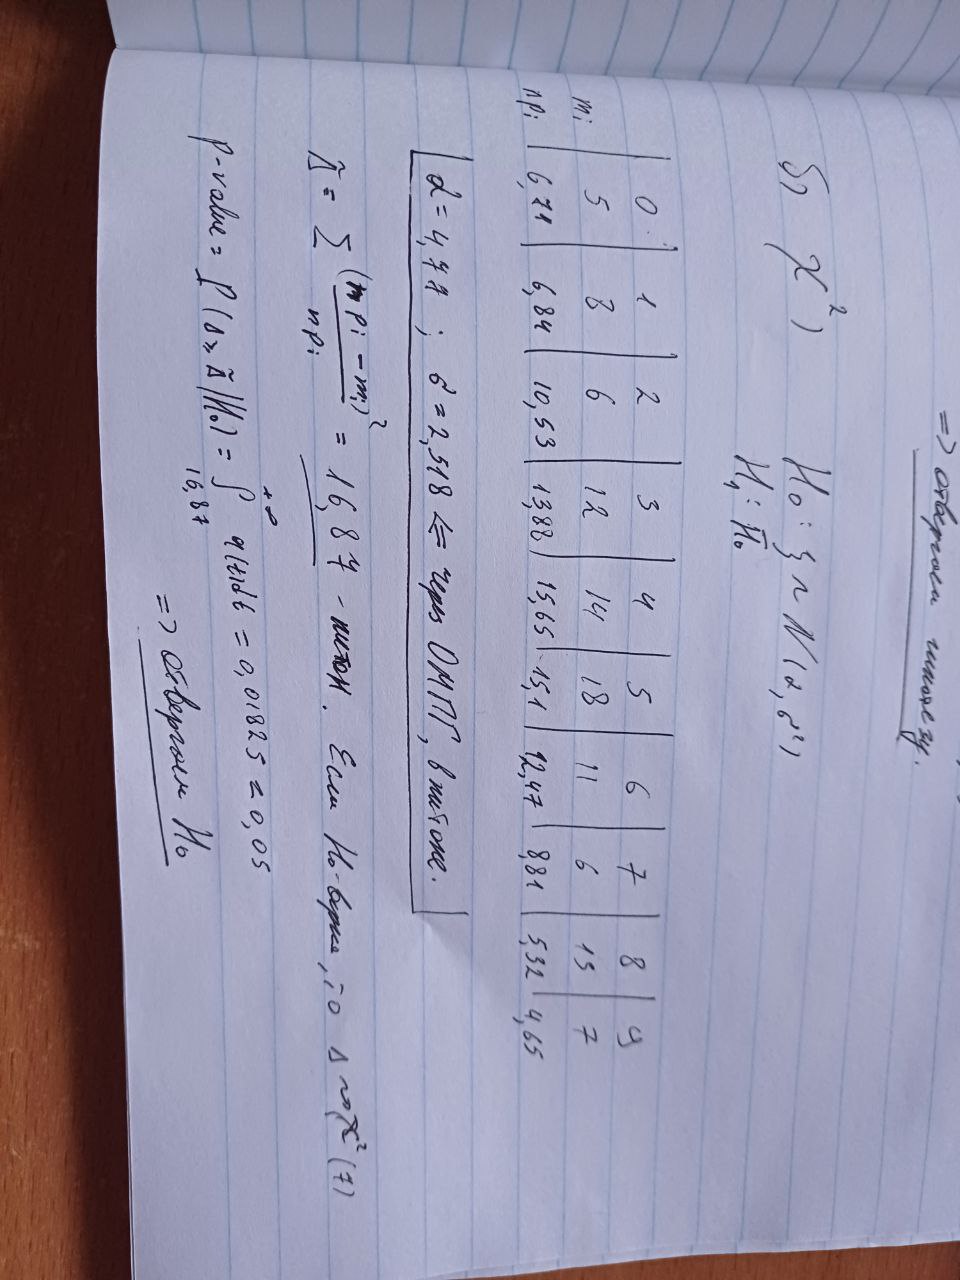 => отвергаем гипотезу.
б) χ²) H₀: ξ ~ N(α, σ²)
H₁: H̅₀
0 1 2 3 4 5 6 7 8 9
mᵢ 5 8 6 12 14 18 11 6 13 7
npᵢ 6,71 6,84 10,53 13,88 15,65 15,1 12,47 8,81 5,32 4,65
α = 4,77 ; σ = 2,518 <= через ОМПГ, в питоне.
Δ̃ = Σ (npᵢ - mᵢ)² / npᵢ = 16,87 - питон. Если H₀-верна, то Δ ~> χ²(7)
p-value = P(Δ ≥ Δ̃ | H₀) = ∫₁₆,₈₇^+∞ q(t)dt = 0,01825 < 0,05
=> отвергаем H₀